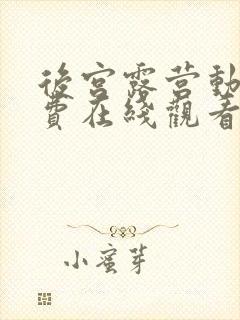 後宮露營動
費在綫觀看
小蜜芽